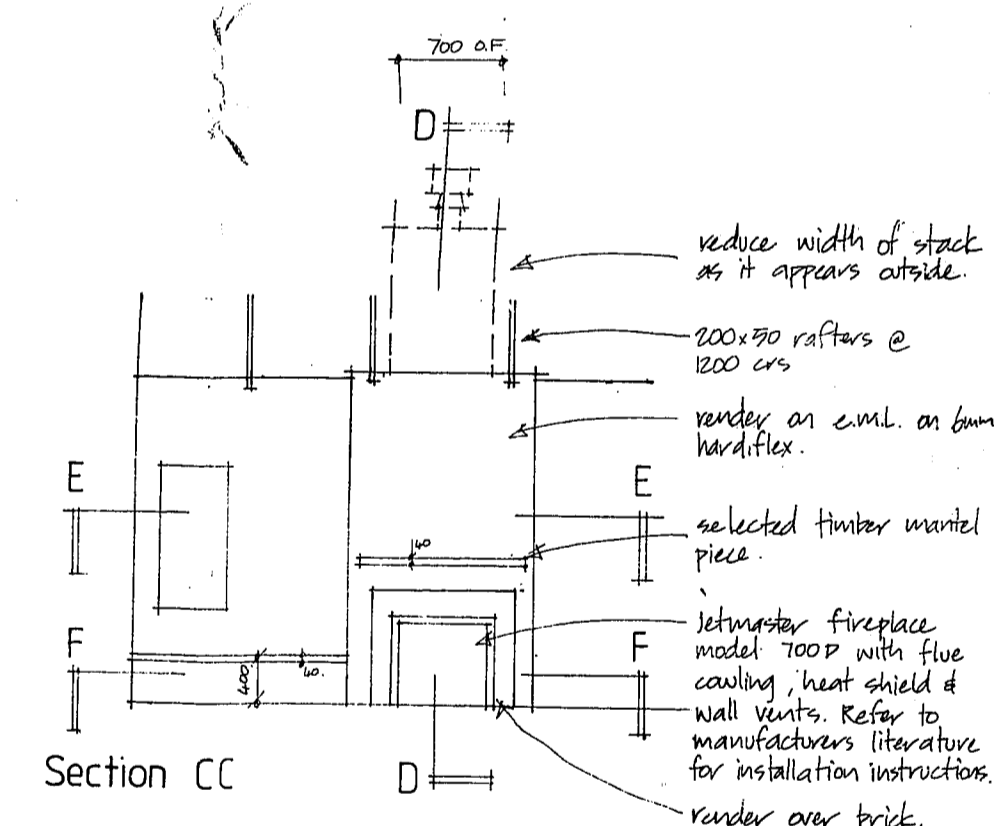 700 O.F.
D
reduce width of stack
as it appears outside.
200x50 rafters @
1200 crs
render on e.m.l. on 6mm
hardiflex.
E
E
40
selected timber mantel
piece.
F
F
400
40.
jetmaster fireplace
model 700D with flue
cowling, heat shield &
wall vents. Refer to
manufacturers literature
for installation instructions.
Section CC
D
render over brick.